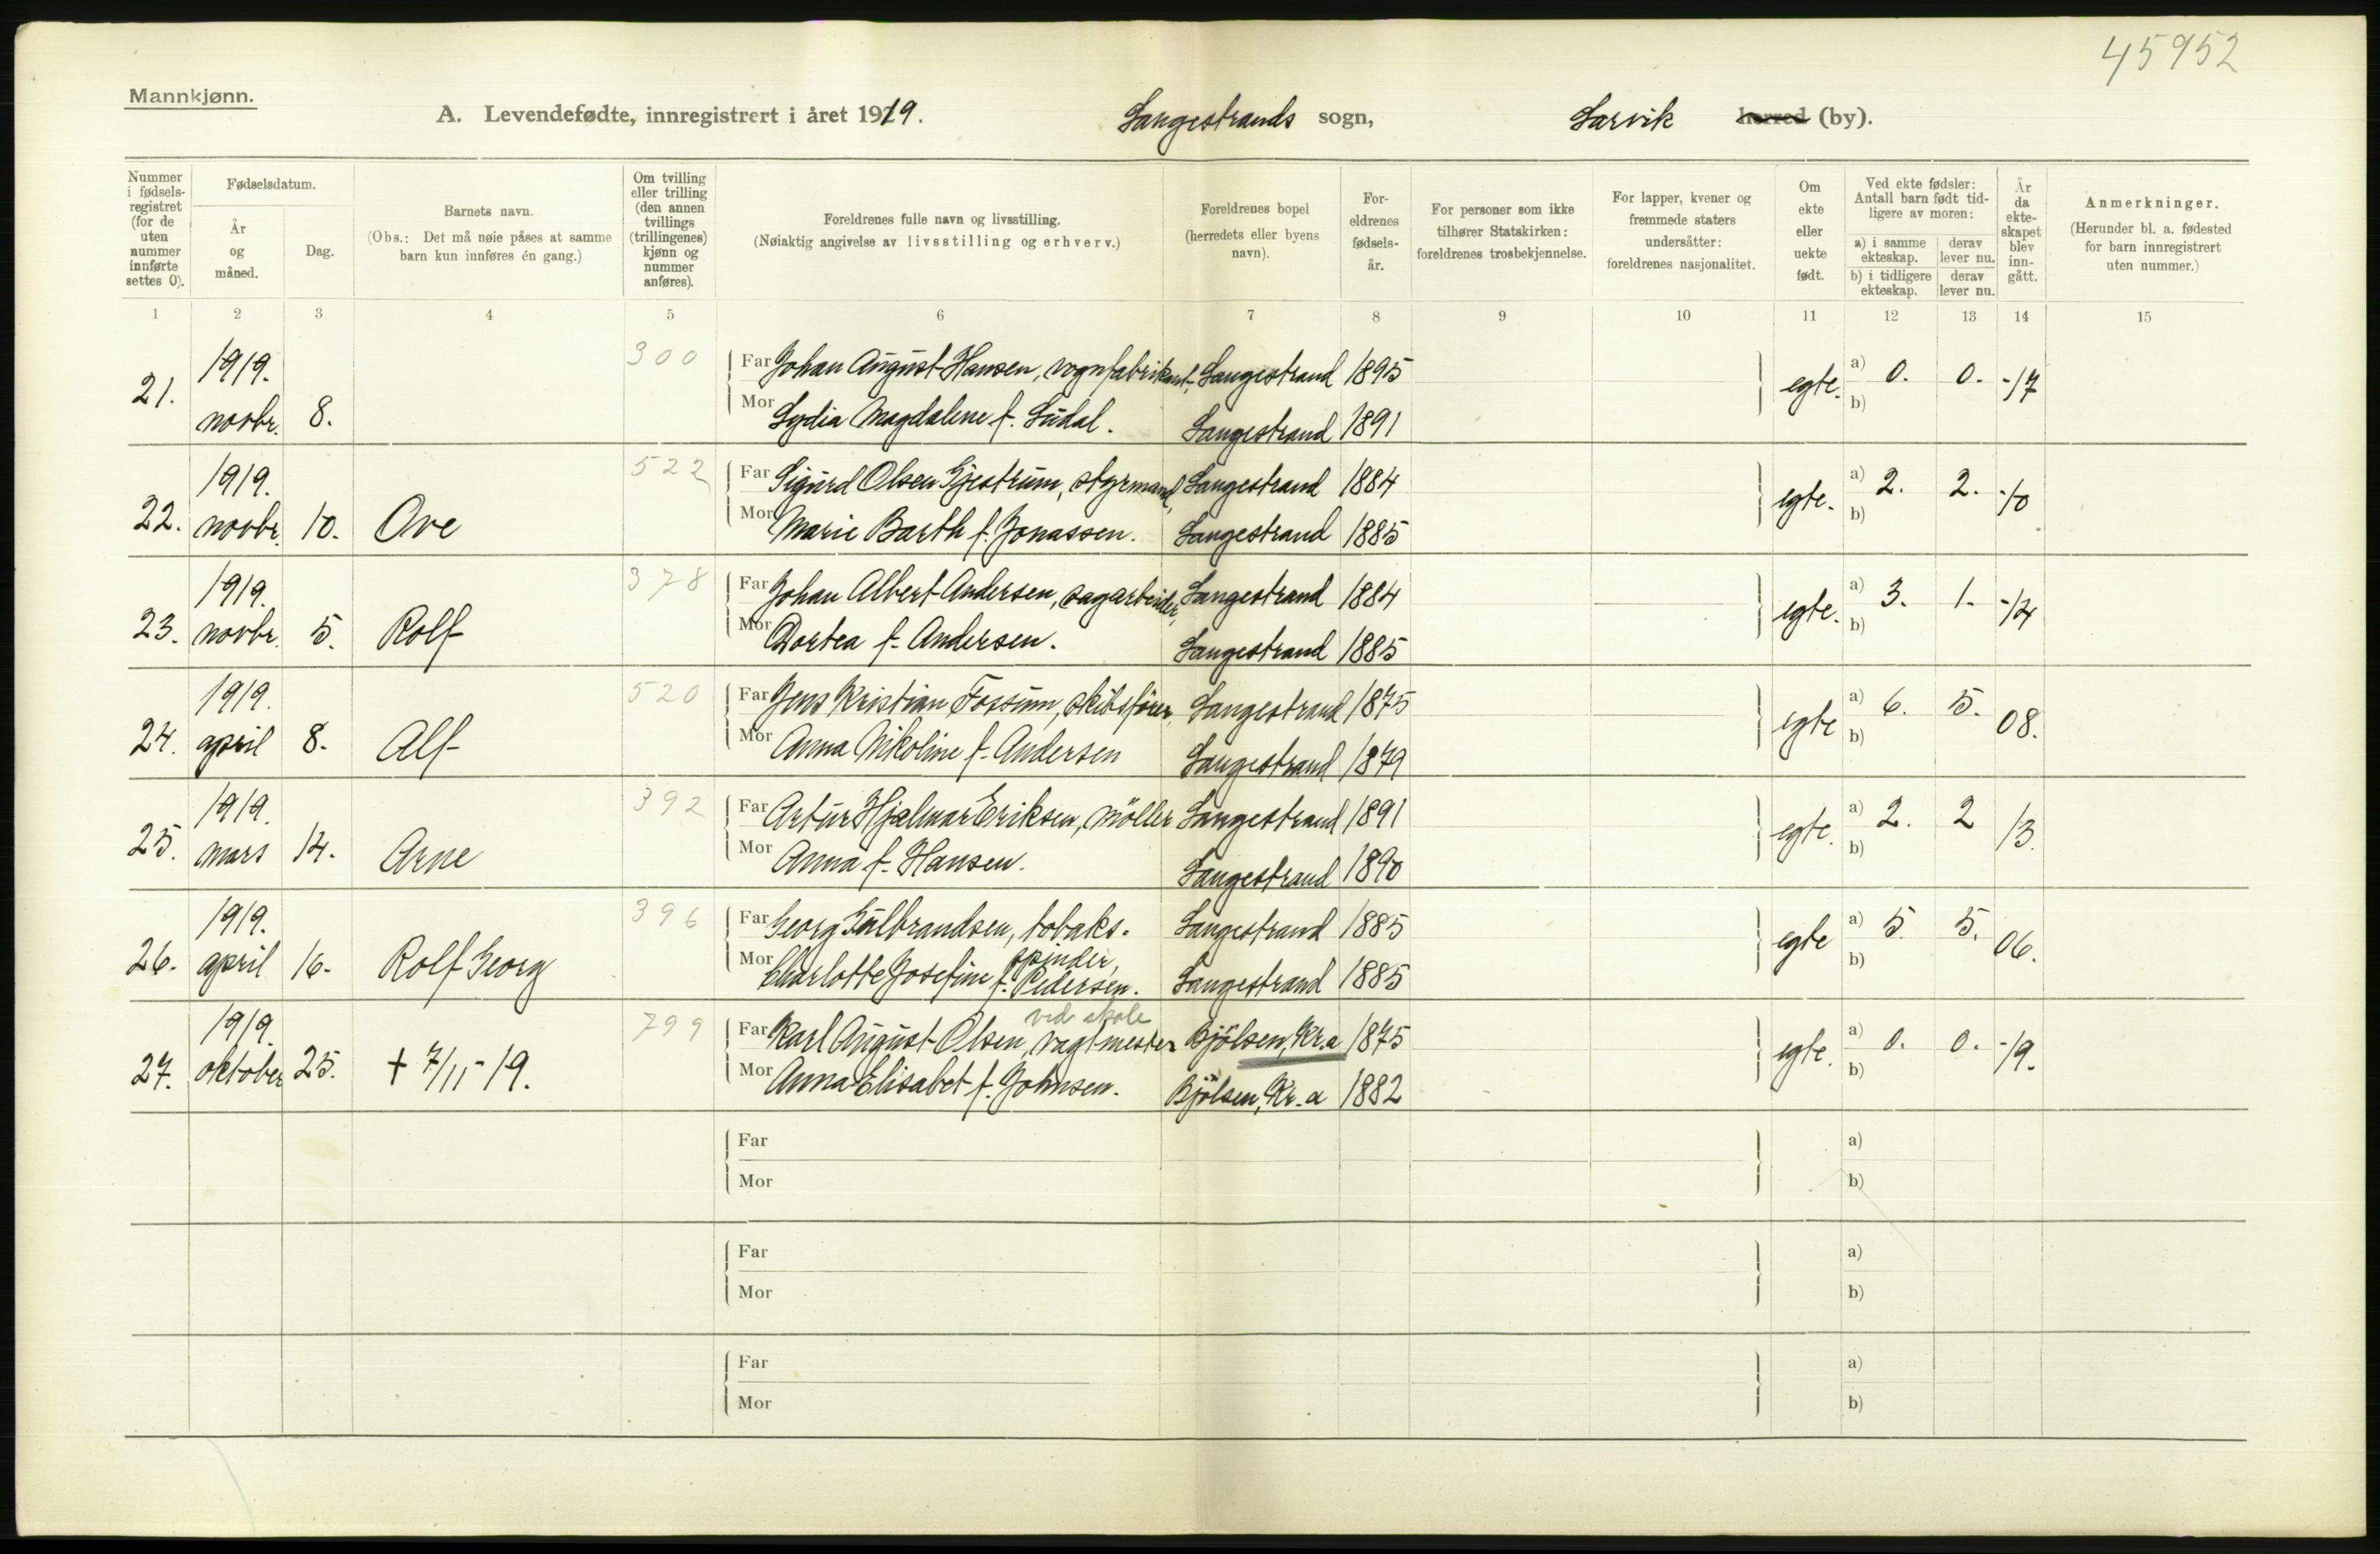 45952
Mannkjønn.
A. Levendefødte, innregistrert i året 1919. Langestrands sogn, Larvik herred (by).
Nummer i fødselsregistret (for de uten nummer innførte settes 0).
Fødselsdatum.
År og måned.
Dag.
Barnets navn.
(Obs.: Det må nøie påses at samme barn kun innføres én gang.)
Om tvilling eller trilling (den annen tvillings (trillingenes) kjønn og nummer anføres).
Foreldrenes fulle navn og livsstilling.
(Nøiaktig angivelse av livsstilling og erhverv.)
Foreldrenes bopel (herredets eller byens navn).
Foreldrenes fødselsår.
For personer som ikke tilhører Statskirken: foreldrenes trosbekjennelse.
For lapper, kvener og fremmede staters undersåtter: foreldrenes nasjonalitet.
Om ekte eller uekte født.
Ved ekte fødsler: Antall barn født tidligere av moren:
a) i samme ekteskap. derav lever nu.
b) i tidligere ekteskap. derav lever nu.
År da ekteskapet blev inngått.
Anmerkninger.
(Herunder bl. a. fødested for barn innregistrert uten nummer.)
1 2 3 4 5 6 7 8 9 10 11 12 13 14 15
21. 1919. novbr. 8. 300
Far Johan August Hansen, vognfabrikant, Langestrand 1895 egte. a) 0. 0. -17
Mor Lydia Magdalene f. Ludal. Langestrand 1891 b)
22. 1919. novbr. 10. Ove 522
Far Sigurd Olsen Gjestrum, styrmand, Langestrand 1884 egte. a) 2. 2. -10
Mor Marie Barth f. Jonassen. Langestrand 1885 b)
23. 1919. novbr. 5. Rolf 378
Far Johan Albert Andersen, sagarbeider, Langestrand 1884 egte. a) 3. 1. -14
Mor Dortea f. Andersen. Langestrand 1885 b)
24. 1919. april 8. Alf 520
Far Jens Kristian Fossum, skibsfører, Langestrand 1875 egte a) 6. 5. 08.
Mor Anna Nikoline f. Andersen Langestrand 1879 b)
25. 1919. mars 14. Arne 392
Far Artur Hjalmar Eriksen, möller Langestrand 1891 egte. a) 2. 2 13.
Mor Anna f. Hansen. Langestrand 1890 b)
26. 1919. april 16. Rolf Georg 396
Far Georg Gulbrandsen, tobaks- Langestrand 1885 egte a) 5. 5. 06.
spinder,
Mor Charlotte Josefine f. Pedersen. Langestrand 1885 b)
27. 1919. oktober 25. + 7/11-19. 799
ved skole
Far Karl August Olsen, vagtmester Bjölsen, Kr.a 1875 egte. a) 0. 0. -19.
Mor Anna Elisabet f. Johnsen. Bjölsen, Kr.a 1882 b)
Far a)
Mor b)
Far a)
Mor b)
Far a)
Mor b)